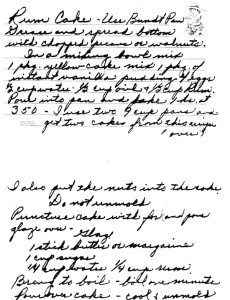 Rum Cake - Use Bundt Pan
Grease and spread bottom
with chopped pecans or walnuts.
In a mixing bowl mix
1 pkg. yellow cake mix 1 pkg. of
instant vanilla pudding 4 eggs
½ cup water, ½ cup oil & ½ cup Rum.
Pour into pan and bake 1 hr. at
350 - I use two cup pans and
get two cakes from this recipe
over
I also put the nuts into the cake.
Do not unmold
Puncture cake with fork and pour
glaze over - Glaze
1 stick butter or margarine
1 cup sugar
¼ cup water ¼ cup rum.
Bring to boil - boil one minute
Pour over cake - cool & unmold